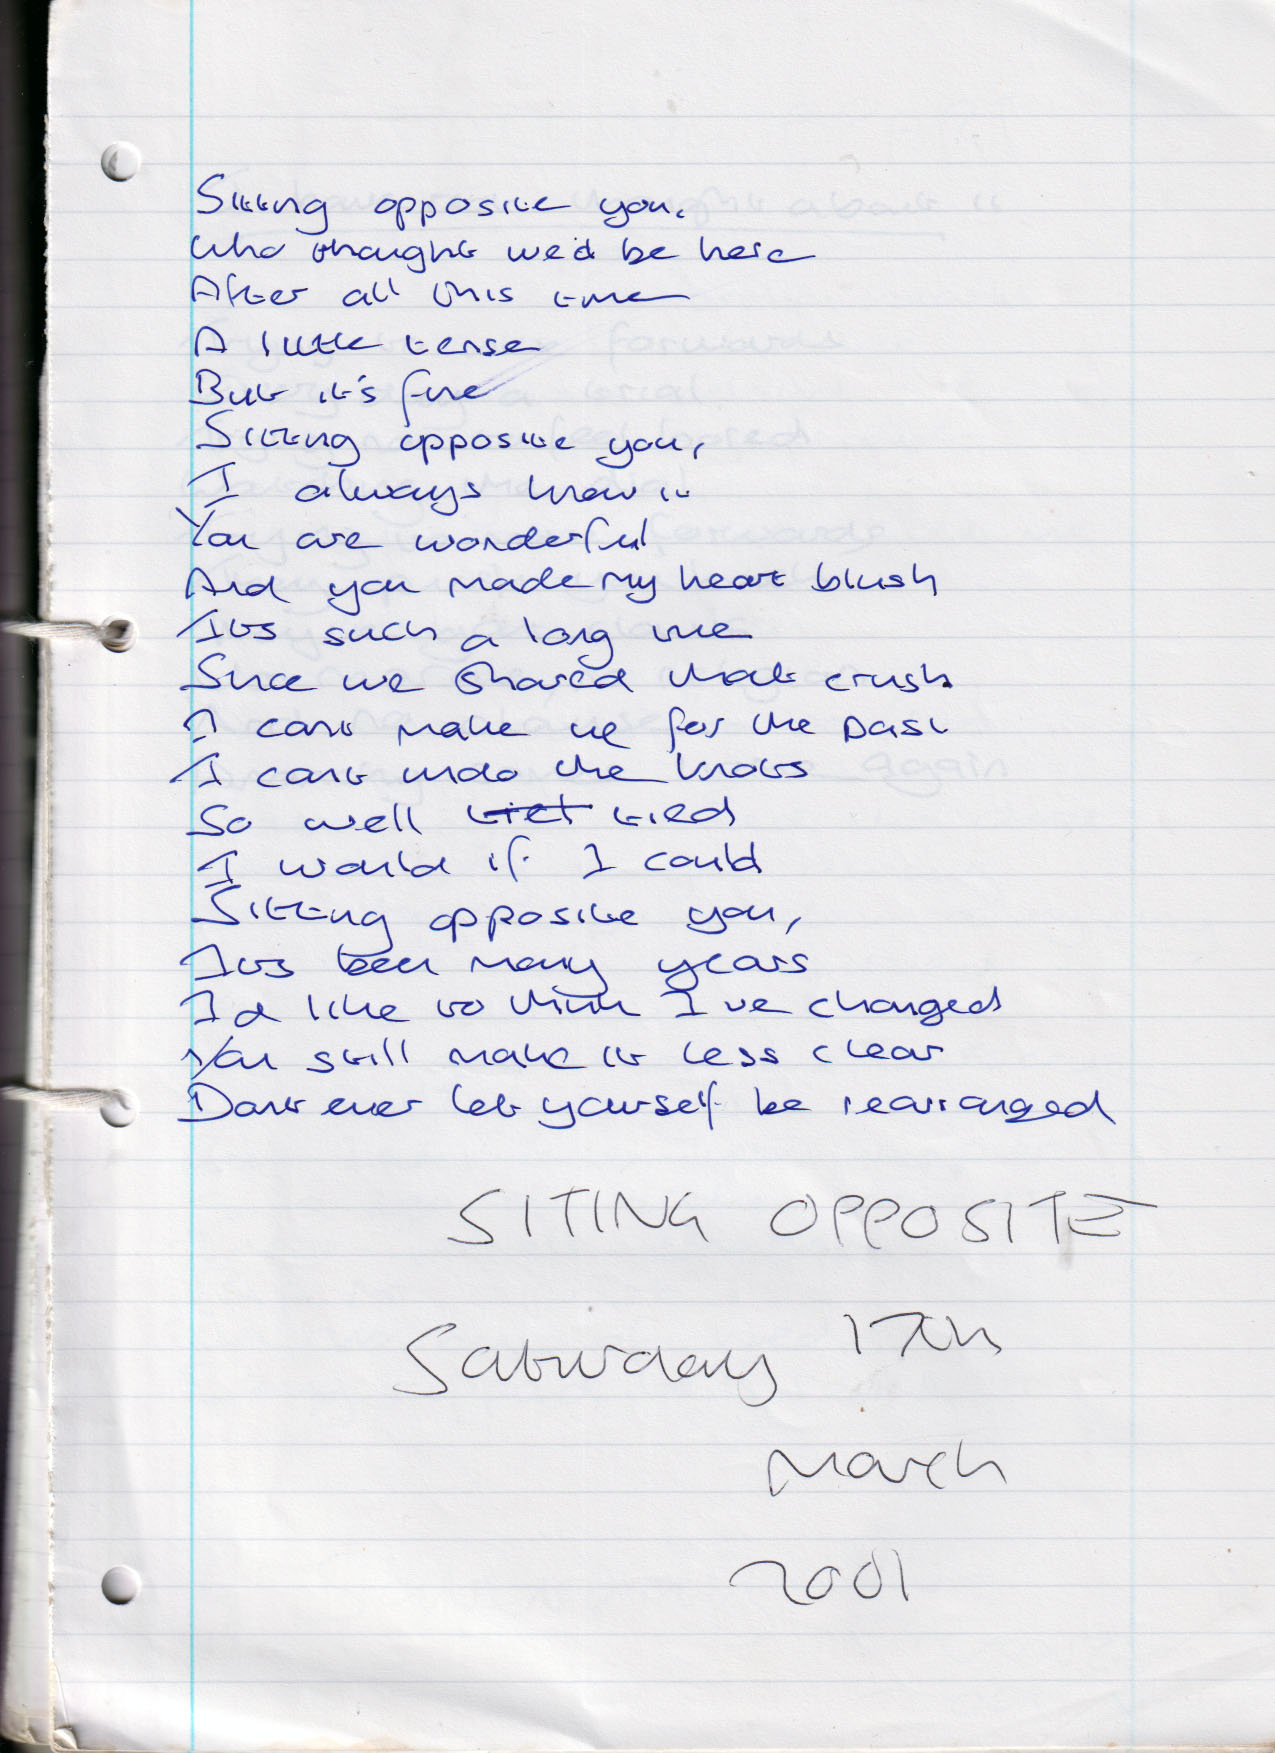 Sitting opposite you,
Who thought we'd be here
After all this time
A little tense
But it's fine
Sitting opposite you,
I always knew it
You are wonderful
And you made my heart blush
Its such a long time
Since we shared that crush
I cant make up for the past
I cant undo the knots
So well tiet tied
I would if I could
Sitting opposite you,
Its been many years
I'd like to think I've changed
You still make it less clear
Dont ever let yourself be rearranged
SITING OPPOSITE
Saturday 17th
March
2001